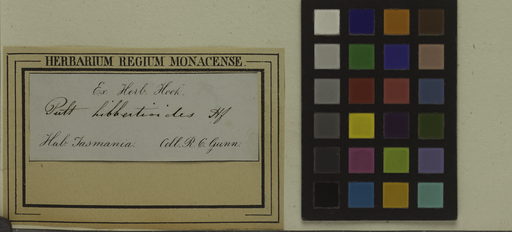 HERBARIUM REGIUM MONACENSE.
Ex Herb. Hook.
Pult hibbertioides Hf
Hab. Tasmania. Coll. R. C. Gunn.